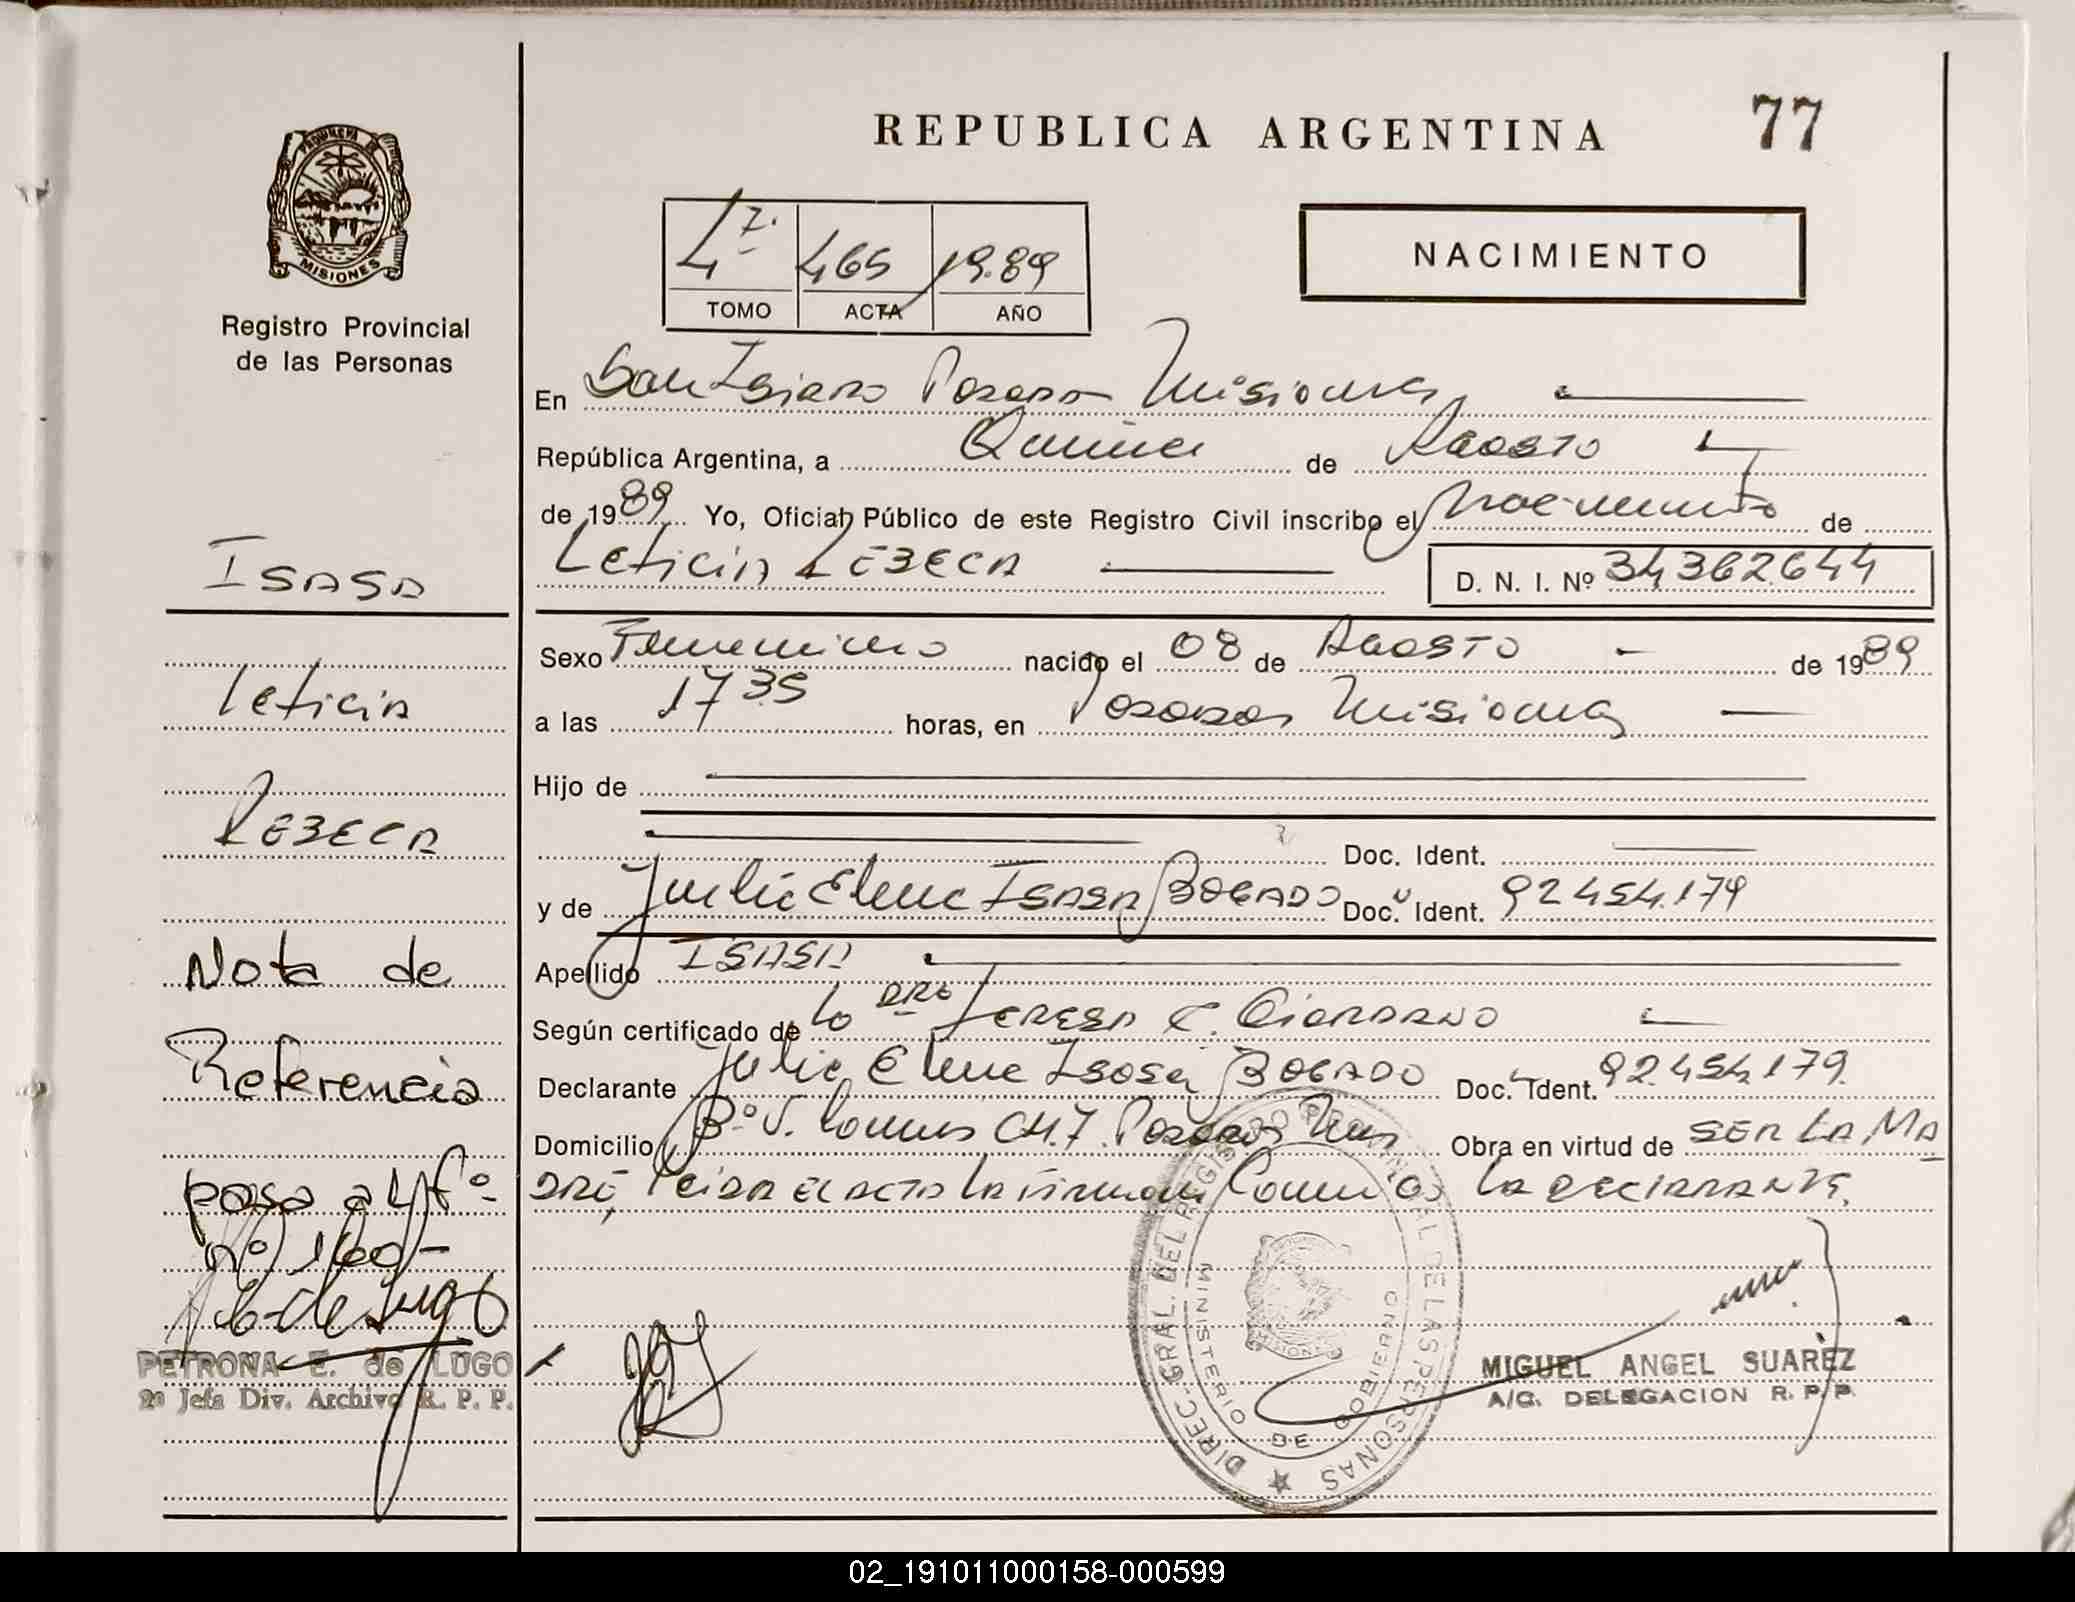 REPUBLICA ARGENTINA
77
PROVINCIA DE
MISIONES
Registro Provincial
de las Personas
465 1989
TOMO ACTA AÑO
NACIMIENTO
En San Isidro Posadas Misiones
República Argentina, a Quince de Agosto
de 1989 Yo, Oficial Público de este Registro Civil inscribo el Nacimiento de
Leticia REBECA
D. N. I. Nº 34362644
Sexo Femenino nacido el 08 de Agosto de 1989
a las 17 35 horas, en Posadas Misiones
Hijo de
Doc. Ident.
y de Julia Elena ISASA BOGADO Doc. Ident. 92454.179
Apellido ISASA
Según certificado de la DRA TERESA C. GIORDANO
Declarante Julia Elena Isasa BOGADO Doc. Ident. 92.454.179.
Domicilio Bº CH.7. Posadas Mnes Obra en virtud de SER LA MA
DRE, Leida el acta la firman conmigo LA DECLARANTE.
ISASA
Leticia
REBECA
Nota de
Referencia
pasa al fº
nº 160-
PETRONA E. de LUGO
2º Jefa Div. Archivo R. P. P.
DIREC. GRAL. DEL REGISTRO PROVINCIAL DE LAS PERSONAS
MINISTERIO DE GOBIERNO
MIGUEL ANGEL SUAREZ
A/C. DELEGACION R. P. P.
02_191011000158-000599